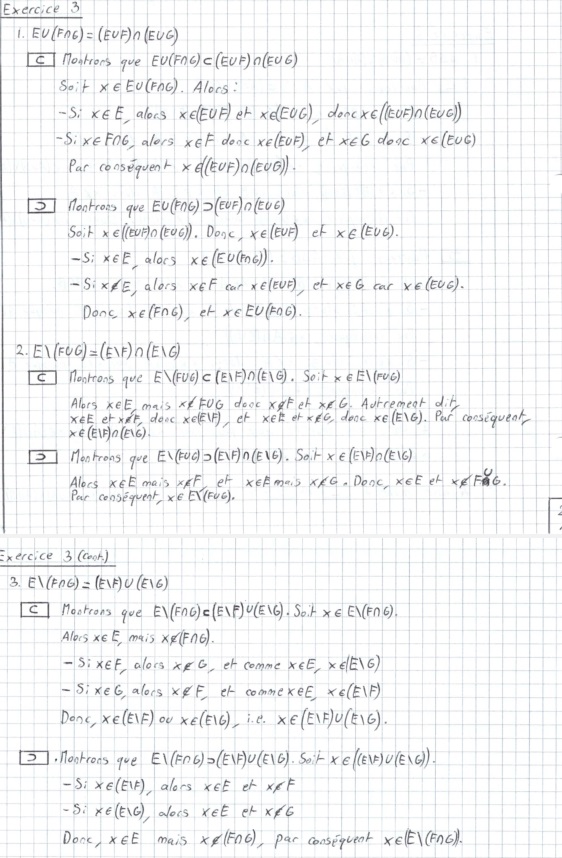 Exercice 3
1. E∪(F∩G)=(E∪F)∩(E∪G)
⊂ Montrons que E∪(F∩G)⊂(E∪F)∩(E∪G)
Soit x∈E∪(F∩G). Alors:
-Si x∈E, alors x∈(E∪F) et x∈(E∪G), donc x∈((E∪F)∩(E∪G))
-Si x∈F∩G, alors x∈F donc x∈(E∪F), et x∈G donc x∈(E∪G)
Par conséquent x∈((E∪F)∩(E∪G)).
⊃ Montrons que E∪(F∩G)⊃(E∪F)∩(E∪G)
Soit x∈((E∪F)∩(E∪G)). Donc, x∈(E∪F) et x∈(E∪G).
-Si x∈E, alors x∈(E∪(F∩G)).
-Si x∉E, alors x∈F car x∈(E∪F), et x∈G car x∈(E∪G).
Donc, x∈(F∩G), et x∈E∪(F∩G).
2. E\(F∪G)=(E\F)∩(E\G)
⊂ Montrons que E\(F∪G)⊂(E\F)∩(E\G). Soit x∈E\(F∪G)
Alors x∈E, mais x∉F∪G donc x∉F et x∉G. Autrement dit,
x∈E et x∉F, donc x∈(E\F), et x∈E et x∉G, donc x∈(E\G). Par conséquent,
x∈(E\F)∩(E\G).
⊃ Montrons que E\(F∪G)⊃(E\F)∩(E\G). Soit x∈(E\F)∩(E\G)
Alors x∈E mais x∉F, et x∈E mais x∉G. Donc, x∈E et x∉F∪G.
Par conséquent, x∈E\(F∪G).
Exercice 3 (cont.)
3. E\(F∩G)=(E\F)∪(E\G)
⊂ Montrons que E\(F∩G)⊂(E\F)∪(E\G). Soit x∈E\(F∩G).
Alors x∈E, mais x∉(F∩G).
-Si x∈F, alors x∉G, et comme x∈E, x∈(E\G)
-Si x∈G, alors x∉F, et comme x∈E, x∈(E\F)
Donc, x∈(E\F) ou x∈(E\G), i.e. x∈(E\F)∪(E\G).
⊃ .Montrons que E\(F∩G)⊃(E\F)∪(E\G). Soit x∈((E\F)∪(E\G)).
-Si x∈(E\F), alors x∈E et x∉F
-Si x∈(E\G), alors x∈E et x∉G
Donc, x∈E mais x∉(F∩G), par conséquent x∈(E\(F∩G)).